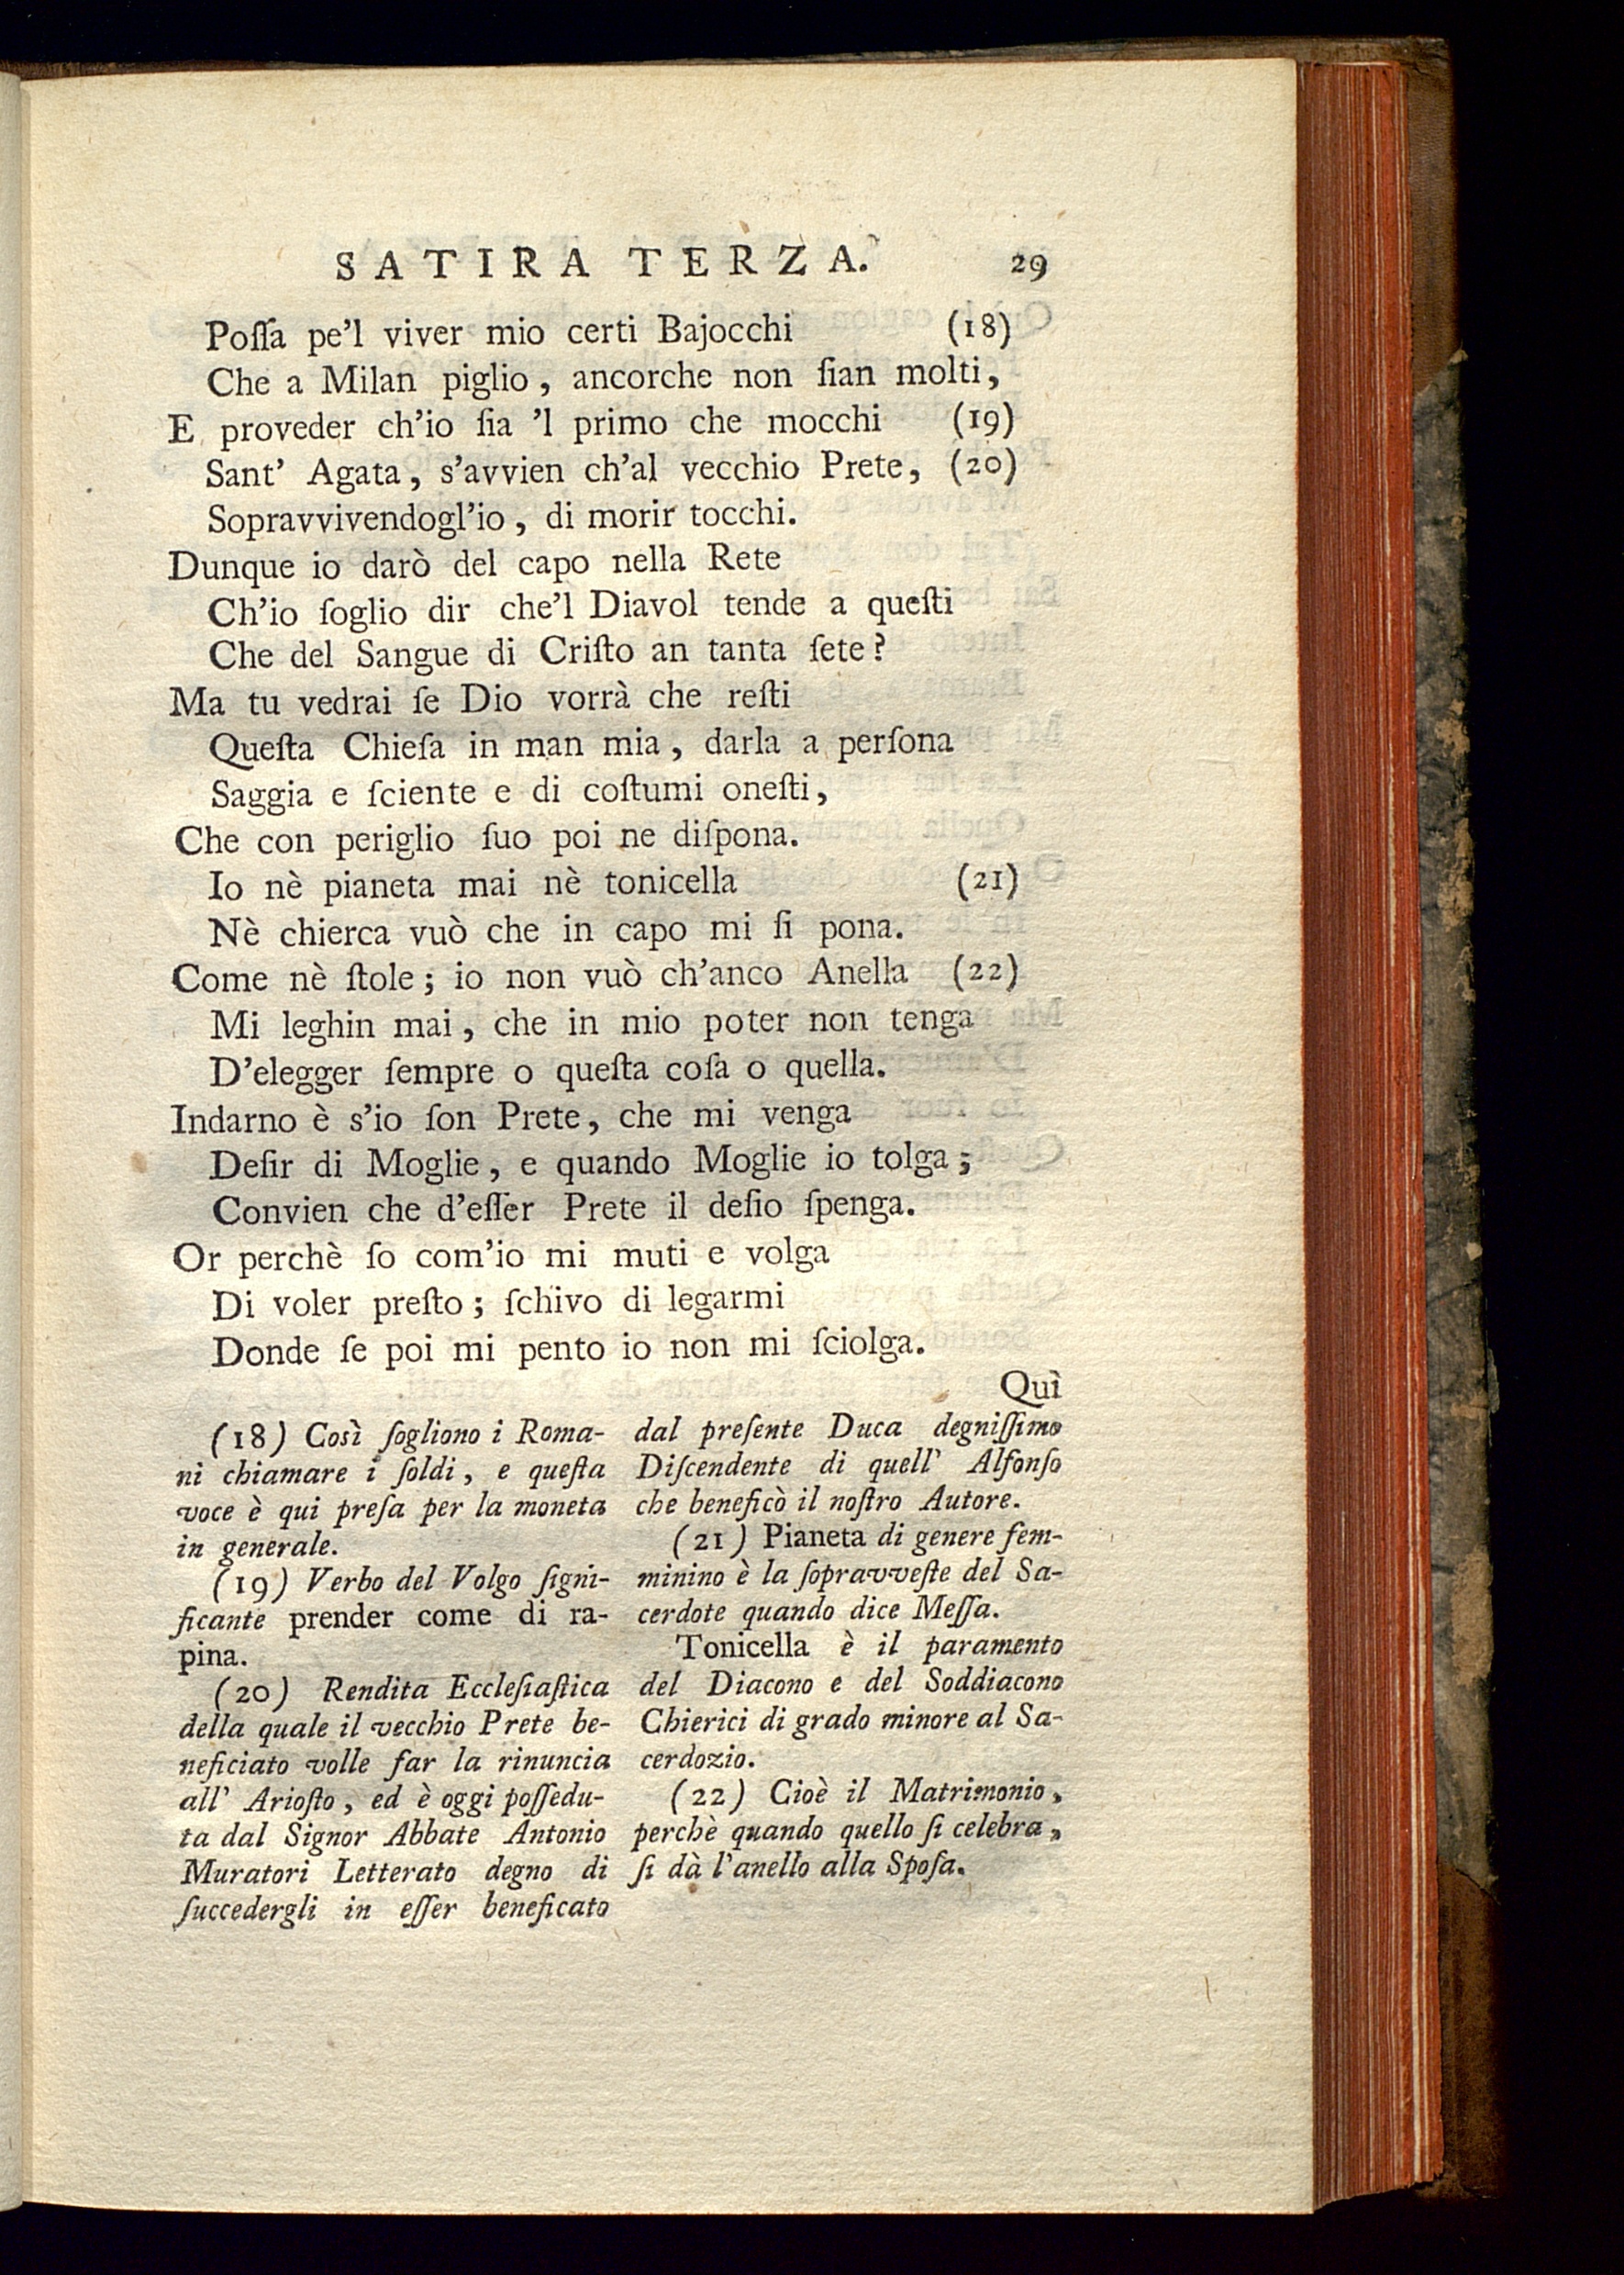 SATIRA TERZA. 29
Poſſa pe'l viver mio certi Bajocchi (18)
Che a Milan piglio, ancorche non ſian molti,
E proveder ch'io ſia 'l primo che mocchi (19)
Sant' Agata, s'avvien ch'al vecchio Prete, (20)
Sopravvivendogl'io, di morir tocchi.
Dunque io darò del capo nella Rete
Ch'io ſoglio dir che'l Diavol tende a queſti
Che del Sangue di Criſto an tanta ſete?
Ma tu vedrai ſe Dio vorrà che reſti
Queſta Chieſa in man mia, darla a perſona
Saggia e ſciente e di coſtumi oneſti,
Che con periglio ſuo poi ne diſpona.
Io nè pianeta mai nè tonicella (21)
Nè chierca vuò che in capo mi ſi pona.
Come nè ſtole; io non vuò ch'anco Anella (22)
Mi leghin mai, che in mio poter non tenga
D'elegger ſempre o queſta coſa o quella.
Indarno è s'io ſon Prete, che mi venga
Deſir di Moglie, e quando Moglie io tolga;
Convien che d'eſſer Prete il deſio ſpenga.
Or perchè ſo com'io mi muti e volga
Di voler preſto; ſchivo di legarmi
Donde ſe poi mi pento io non mi ſciolga.
Quì
(18) Così ſogliono i Roma-
ni chiamare i ſoldi, e queſta
voce è qui preſa per la moneta
in generale.
(19) Verbo del Volgo ſigni-
ficante prender come di ra-
pina.
(20) Rendita Eccleſiaſtica
della quale il vecchio Prete be-
neficiato volle far la rinuncia
all' Arioſto, ed è oggi poſſedu-
ta dal Signor Abbate Antonio
Muratori Letterato degno di
ſuccedergli in eſſer beneficato
dal preſente Duca degniſſimo
Diſcendente di quell' Alfonſo
che beneficò il noſtro Autore.
(21) Pianeta di genere fem-
minino è la ſopravveſte del Sa-
cerdote quando dice Meſſa.
Tonicella è il paramento
del Diacono e del Soddiacono
Chierici di grado minore al Sa-
cerdozio.
(22) Cioè il Matrimonio,
perchè quando quello ſi celebra,
ſi dà l'anello alla Spoſa.